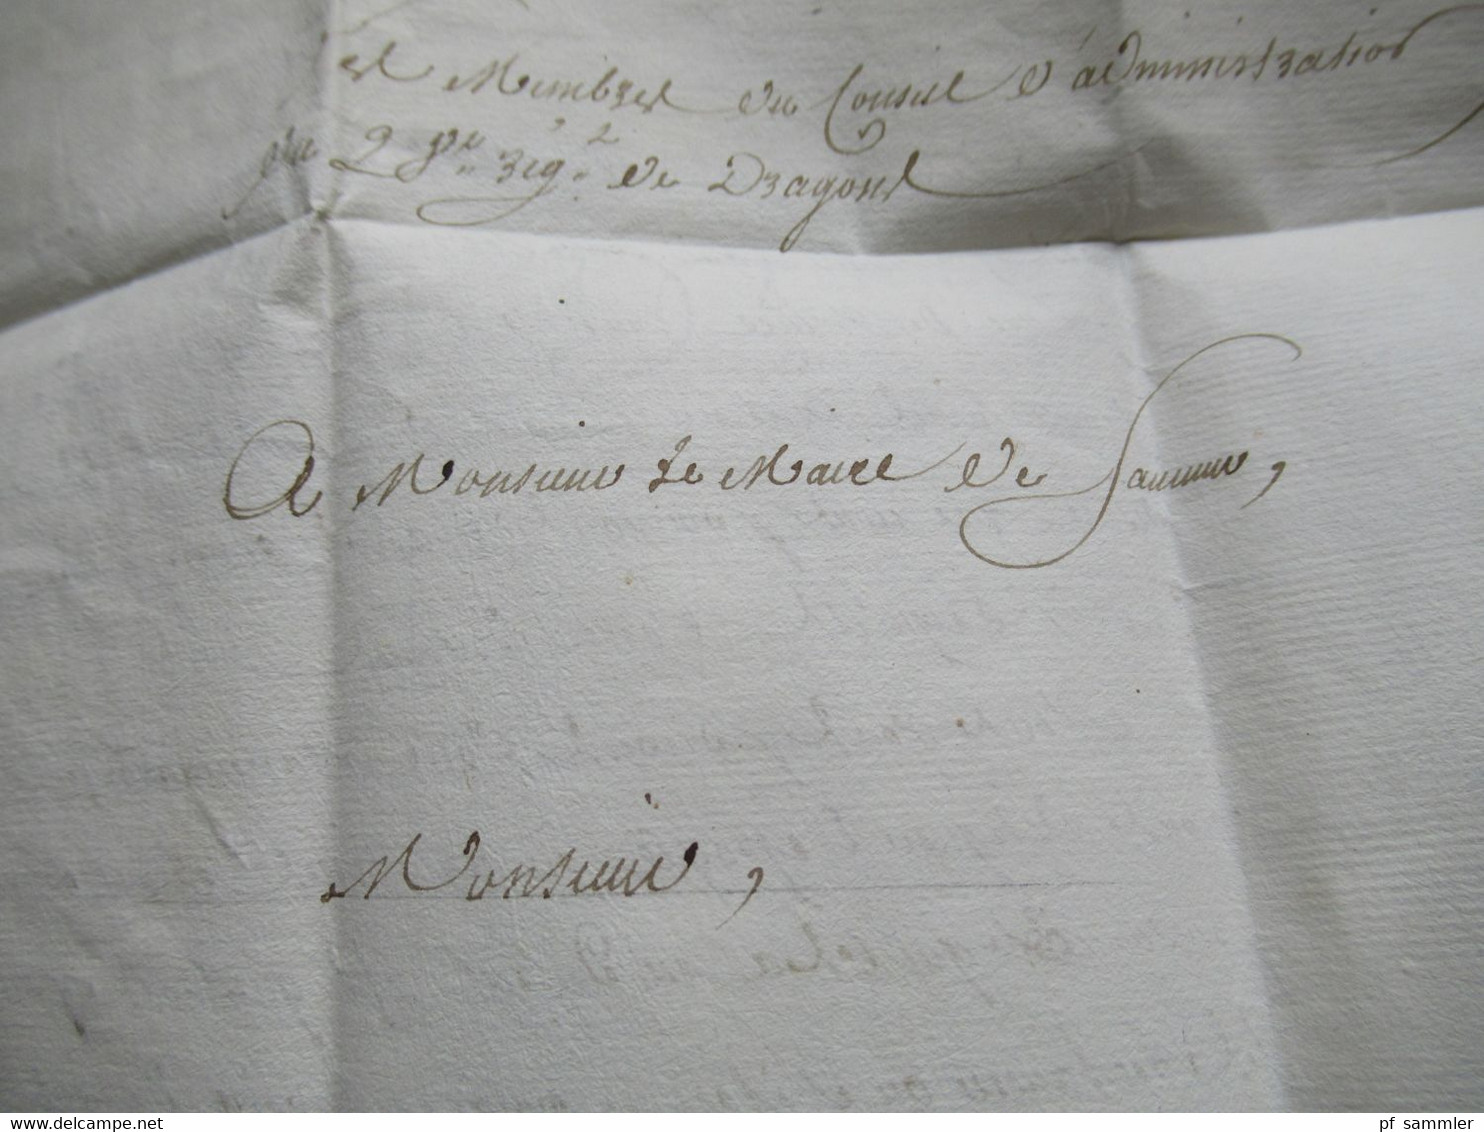 Les Membres du Conseil d'administration
du 2.e Reg.t de Dragons
A Monsieur Le Maire de Saumur,
Monsieur,
www.delcampe.net
pf_sammler